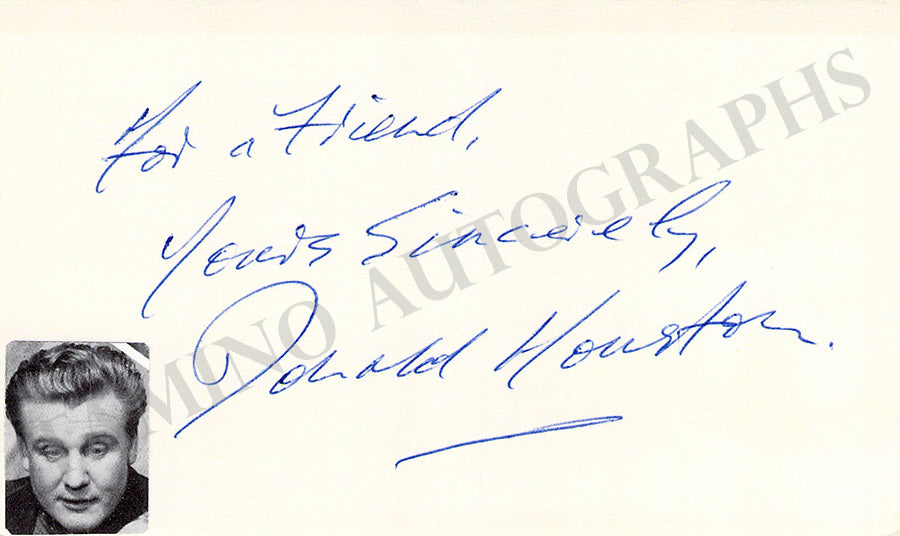 For a Friend,
Yours Sincerely,
Donald Houston.
TAMINO AUTOGRAPHS